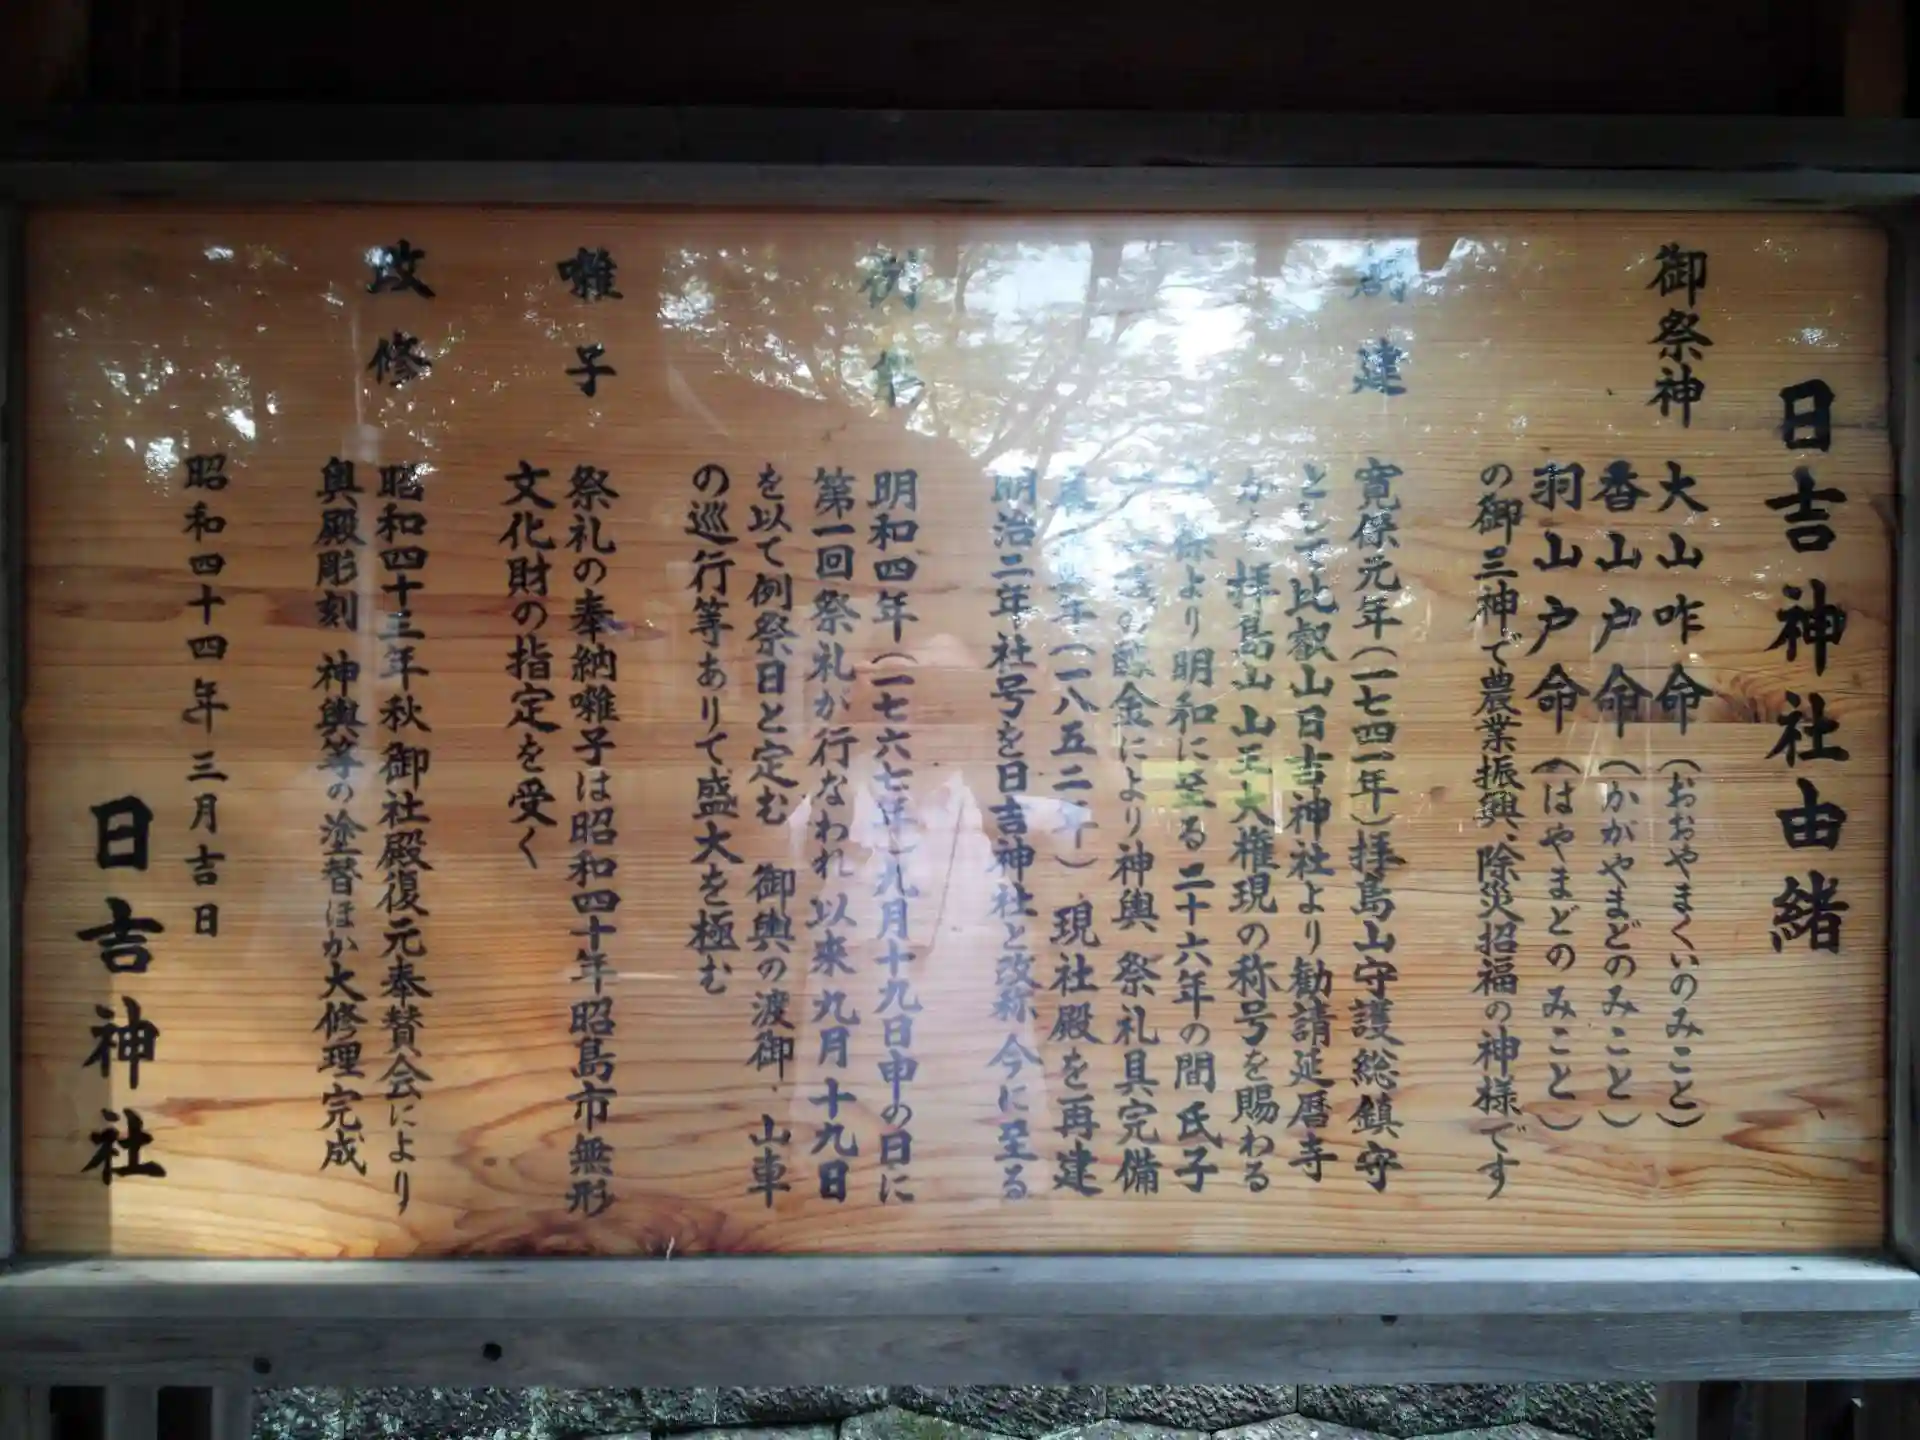 日吉神社由緒
御祭神
大山咋命(おおやまくいのみこと)
香山戸命(かがやまどのみこと)
羽山戸命(はやまどのみこと)
の御三神で農業振興、除災招福の神様です
創建
寛保元年(一七四一年)拝島山守護総鎮守
として比叡山日吉神社より勧請延暦寺
から拝島山山王大権現の称号を賜わる
保より明和に至る二十六年の間氏子
の醵金により神輿 祭礼具完備
年(一八五二年)現社殿を再建
明治二年社号を日吉神社と改称今に至る
例祭
明和四年(一七六七年)九月十九日申の日に
第一回祭礼が行なわれ以来九月十九日
を以て例祭日と定む 御輿の渡御・山車
の巡行等ありて盛大を極む
囃子
祭礼の奉納囃子は昭和四十年昭島市無形
文化財の指定を受く
改修
昭和四十三年秋御社殿復元奉賛会により
奥殿彫刻 神輿等の塗替ほか大修理完成
昭和四十四年三月吉日
日吉神社